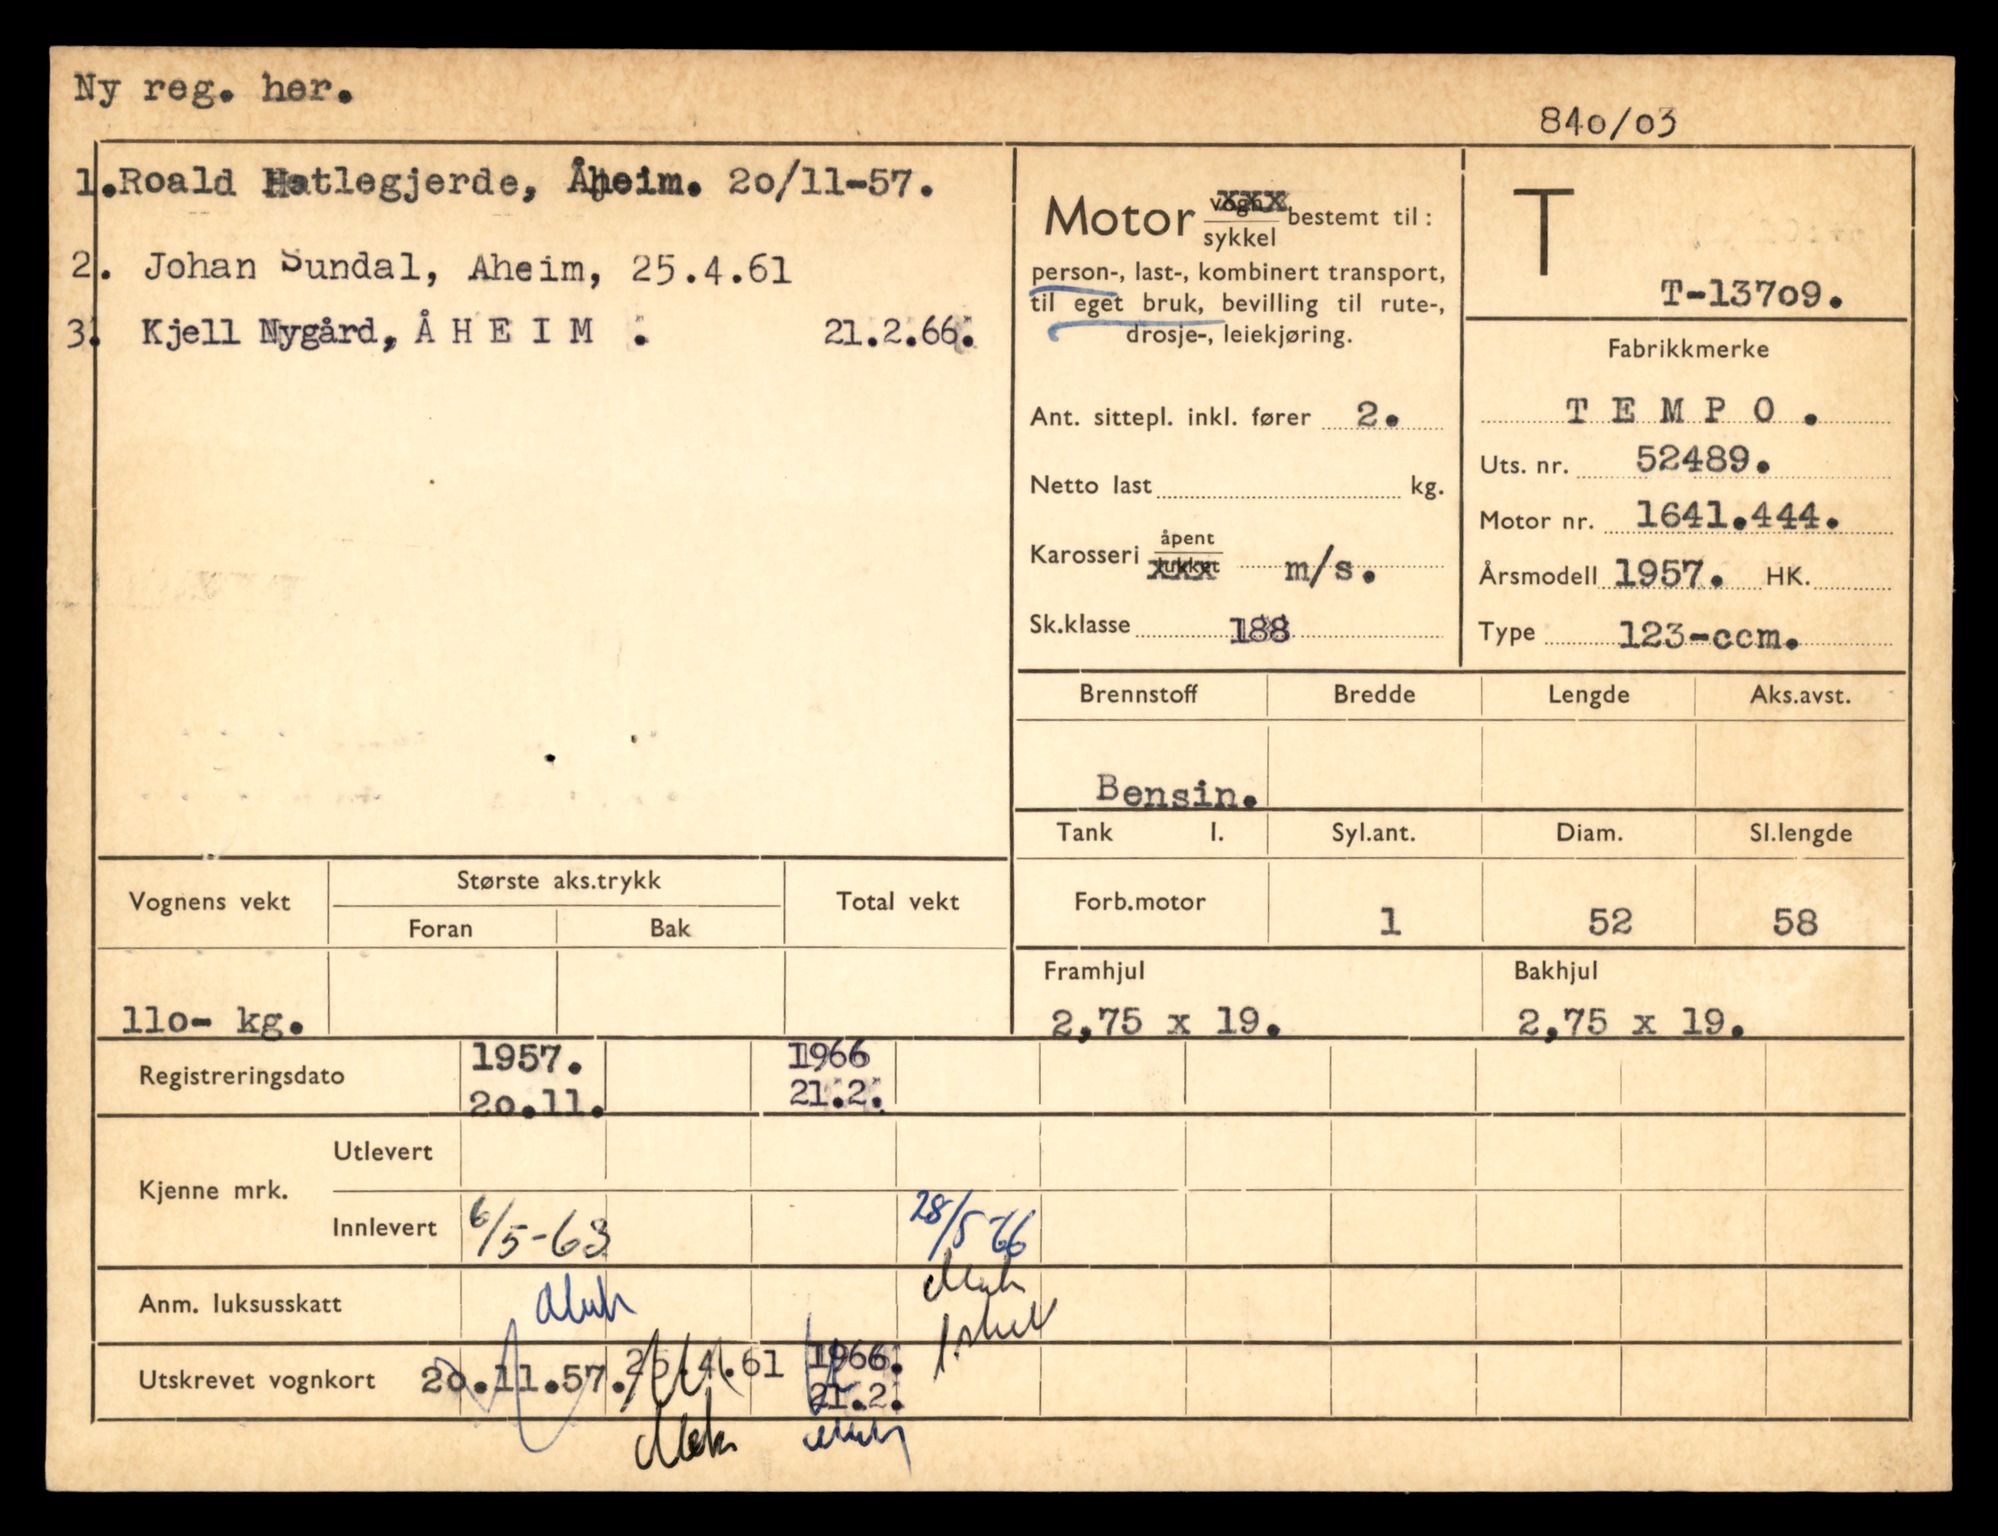 Ny reg. her.
840/03
1. Roald Hatlegjerde, Åheim. 20/11-57.
2. Johan Sundal, Aheim, 25.4.61
3. Kjell Nygård, ÅHEIM. 21.2.66.
Motor vogn xxx / sykkel bestemt til:
person-, last-, kombinert transport,
til eget bruk, bevilling til rute-,
drosje-, leiekjøring.
Ant. sittepl. inkl. fører 2.
Netto last kg.
Karosseri åpent / lukket xxx m/s.
Sk.klasse 188
T
T-13709.
Fabrikkmerke
TEMPO.
Uts. nr. 52489.
Motor nr. 1641.444.
Årsmodell 1957. HK.
Type 123-ccm.
Brennstoff Bredde Lengde Aks.avst.
Bensin.
Tank l. Syl.ant. Diam. Sl.lengde
Forb.motor 1 52 58
Framhjul Bakhjul
2,75 x 19. 2,75 x 19.
Vognens vekt Største aks.trykk Total vekt
Foran Bak
110- kg.
Registreringsdato 1957. 1966
20.11. 21.2.
Kjenne mrk. Utlevert
Innlevert 6/5-63 28/5-66
Anm. luksusskatt
Utskrevet vognkort 20.11.57. 25.4.61 1966.
21.2.